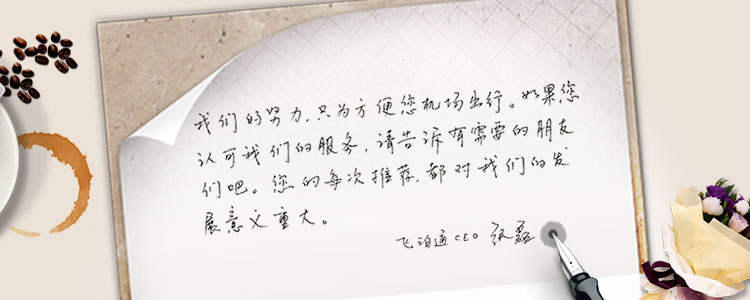 我们的努力,只为方便您机场出行。如果您
认可我们的服务,请告诉有需要的朋友
们吧。您的每次推荐,都对我们的发
展意义重大。
飞泊通CEO 张磊